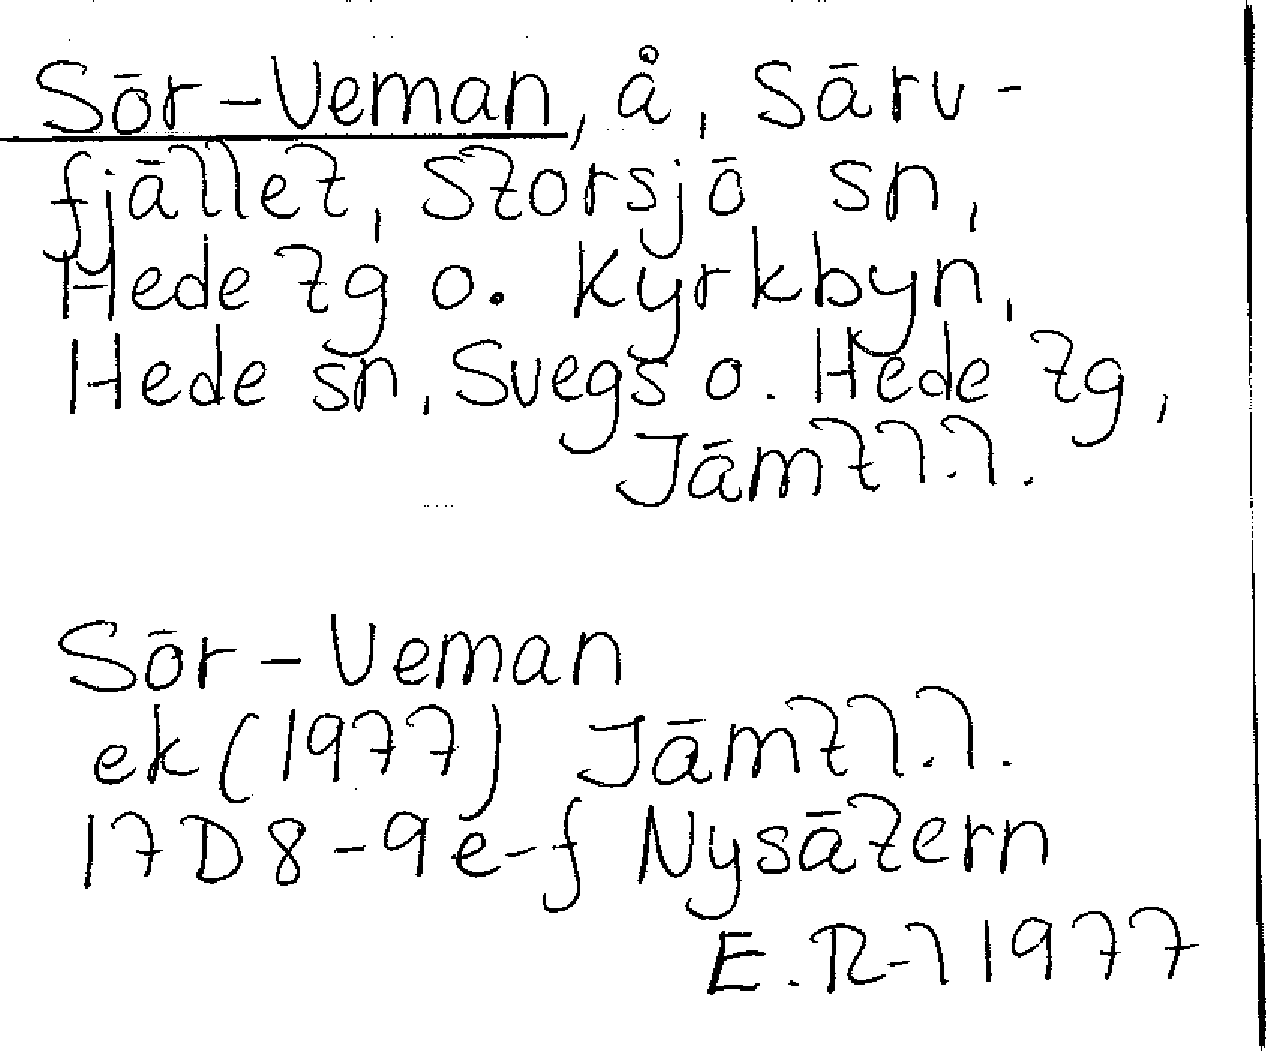 Sör-Veman, å, Särv-
fjället, Storsjö sn,
Hede tg o. Kyrkbyn,
Hede sn, Svegs o. Hede tg,
Jämtl.l.
Sör-Veman
ek (1977) Jämtl.l.
17D 8-9 e-f Nysätern
E. R-l 1977